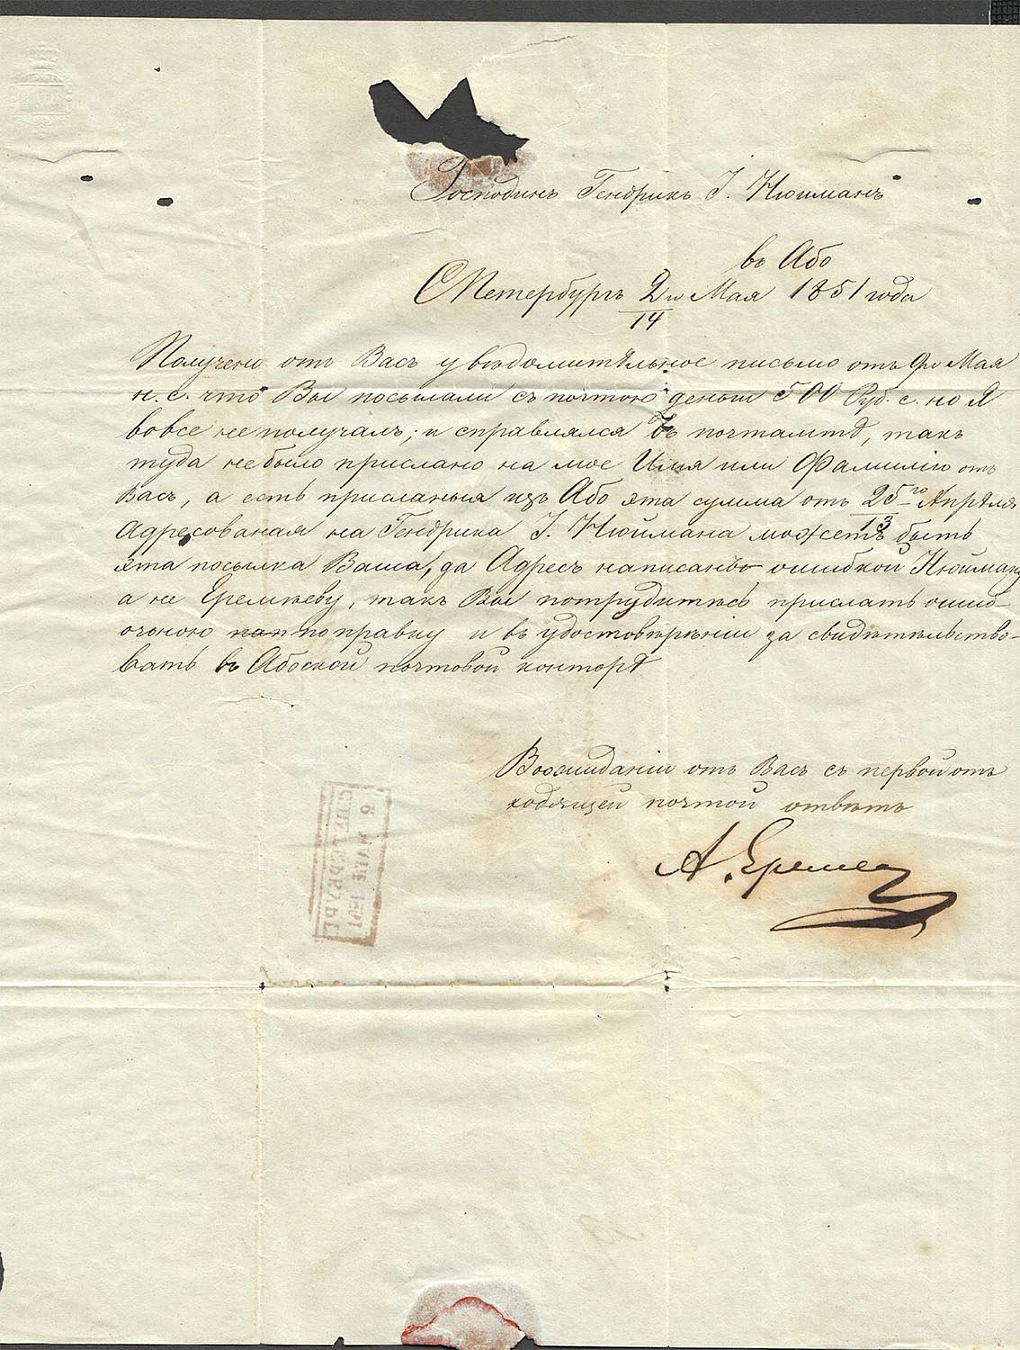 Господинъ Гендрикъ І. Нюйманъ
въ Або
СПетербургъ 2го/14 Мая 1851 года
Получено отъ Васъ увѣдомительное письмо отъ 9го Мая
н. с. что Вы посылали съ почтою деньги 500 Руб. с. но Я
вовсе не получалъ; и справлялся въ почтамтѣ, такъ
туда небыло прислано на мое Имя или Фамилію отъ
Васъ, а есть присланыя изъ Або эта сумма отъ 25го Апрѣля
Адресованая на Гендрика І. Нюймана можетъ быть 13
эта посылка Ваша, да Адресъ написанъ ошибкой Нюйману
а не Еремѣеву, такъ Вы потрудитесь прислать ошиб-
очьною поправку и въ удостовѣреніи за свидѣтельство-
вать въ Абоской почтовой конторѣ
Вожиданіи отъ Васъ съ первой от
ходящей почтой отвѣтъ
А. Еремеев
6 1851